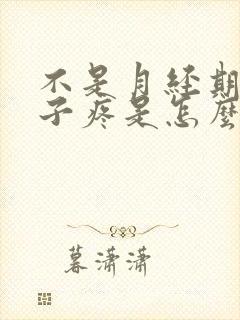 不是月经期
子疼是怎麼
暮潇潇